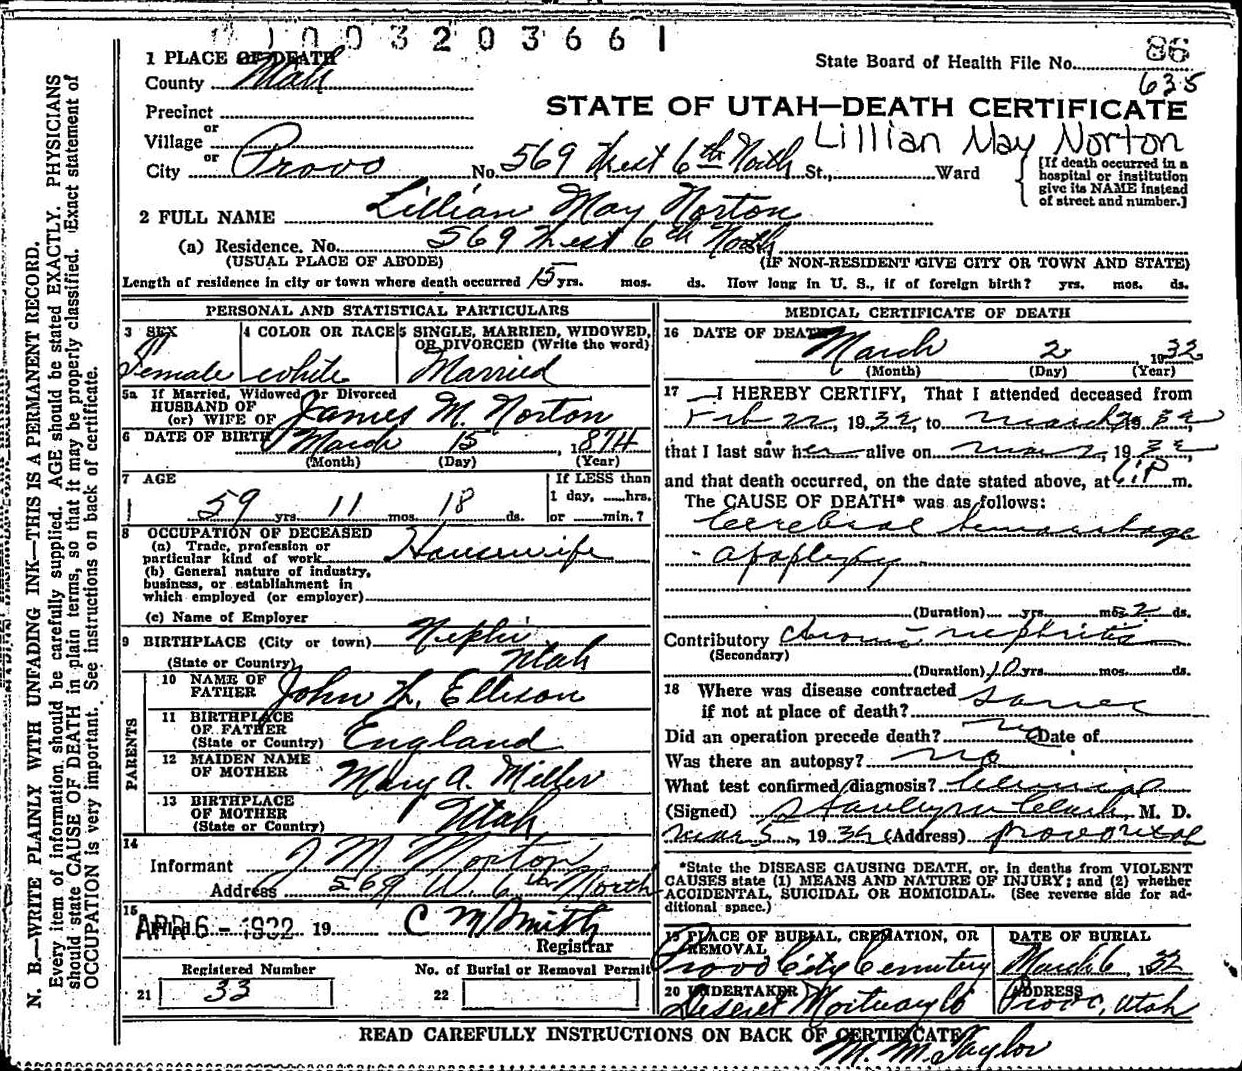 0 1 0 0 3 2 0 3 6 6 1
86
1 PLACE OF DEATH
State Board of Health File No.
635
County Utah
STATE OF UTAH—DEATH CERTIFICATE
Precinct
Lillian May Norton
or
Village
or
City Provo No. 569 West 6th North St., Ward
[If death occurred in a
hospital or institution
give its NAME instead
of street and number.]
2 FULL NAME Lillian May Norton
(a) Residence. No. 569 West 6th North
(USUAL PLACE OF ABODE) (IF NON-RESIDENT GIVE CITY OR TOWN AND STATE)
Length of residence in city or town where death occurred 15 yrs. mos. ds. How long in U. S., if of foreign birth? yrs. mos. ds.
PERSONAL AND STATISTICAL PARTICULARS
3 SEX
Female
4 COLOR OR RACE
White
5 SINGLE, MARRIED, WIDOWED,
OR DIVORCED (Write the word)
Married
5a If Married, Widowed or Divorced
HUSBAND OF
(or) WIFE OF James M. Norton
6 DATE OF BIRTH March 15, 1874
(Month) (Day) (Year)
7 AGE
59 yrs. 11 mos. 18 ds.
If LESS than
1 day, hrs.
or min.?
8 OCCUPATION OF DECEASED
(a) Trade, profession or
particular kind of work Housewife
(b) General nature of industry,
business, or establishment in
which employed (or employer)
(c) Name of Employer
9 BIRTHPLACE (City or town) Nephi
(State or Country) Utah
PARENTS
10 NAME OF
FATHER John H. Ellison
11 BIRTHPLACE
OF FATHER
(State or Country) England
12 MAIDEN NAME
OF MOTHER Mary A. Miller
13 BIRTHPLACE
OF MOTHER
(State or Country) Utah
14
Informant J. M. Norton
Address 569 W. 6th North
15
Filed APR 6 - 1932 19 C M Smith
Registrar
Registered Number
21 33
No. of Burial or Removal Permit
22
MEDICAL CERTIFICATE OF DEATH
16 DATE OF DEATH
March 2 1932
(Month) (Day) (Year)
17 I HEREBY CERTIFY, That I attended deceased from
Feb 22, 1932, to March 2 1932
that I last saw her alive on Mar 2, 1932,
and that death occurred, on the date stated above, at P m.
The CAUSE OF DEATH* was as follows:
Cerebral hemorrhage
apoplexy
(Duration) yrs. mos. 2 ds.
Contributory Chronic nephritis
(Secondary)
(Duration) 10 yrs. mos. ds.
18 Where was disease contracted
if not at place of death? same
Did an operation precede death? no Date of
Was there an autopsy? no
What test confirmed diagnosis? Clinical
(Signed) Clark, M. D.
Mar 5, 1932 (Address) Provo Utah
*State the DISEASE CAUSING DEATH, or, in deaths from VIOLENT
CAUSES state (1) MEANS AND NATURE OF INJURY; and (2) whether
ACCIDENTAL, SUICIDAL OR HOMICIDAL. (See reverse side for ad-
ditional space.)
19 PLACE OF BURIAL, CREMATION, OR
REMOVAL
Provo City Cemetery
DATE OF BURIAL
March 6, 1932
20 UNDERTAKER
Deseret Mortuary Co
ADDRESS
Provo, Utah
READ CAREFULLY INSTRUCTIONS ON BACK OF CERTIFICATE
M. M. Taylor
N. B.—WRITE PLAINLY WITH UNFADING INK—THIS IS A PERMANENT RECORD.
Every item of information should be carefully supplied. AGE should be stated EXACTLY. PHYSICIANS
should state CAUSE OF DEATH in plain terms, so that it may be properly classified. Exact statement of
OCCUPATION is very important. See instructions on back of certificate.